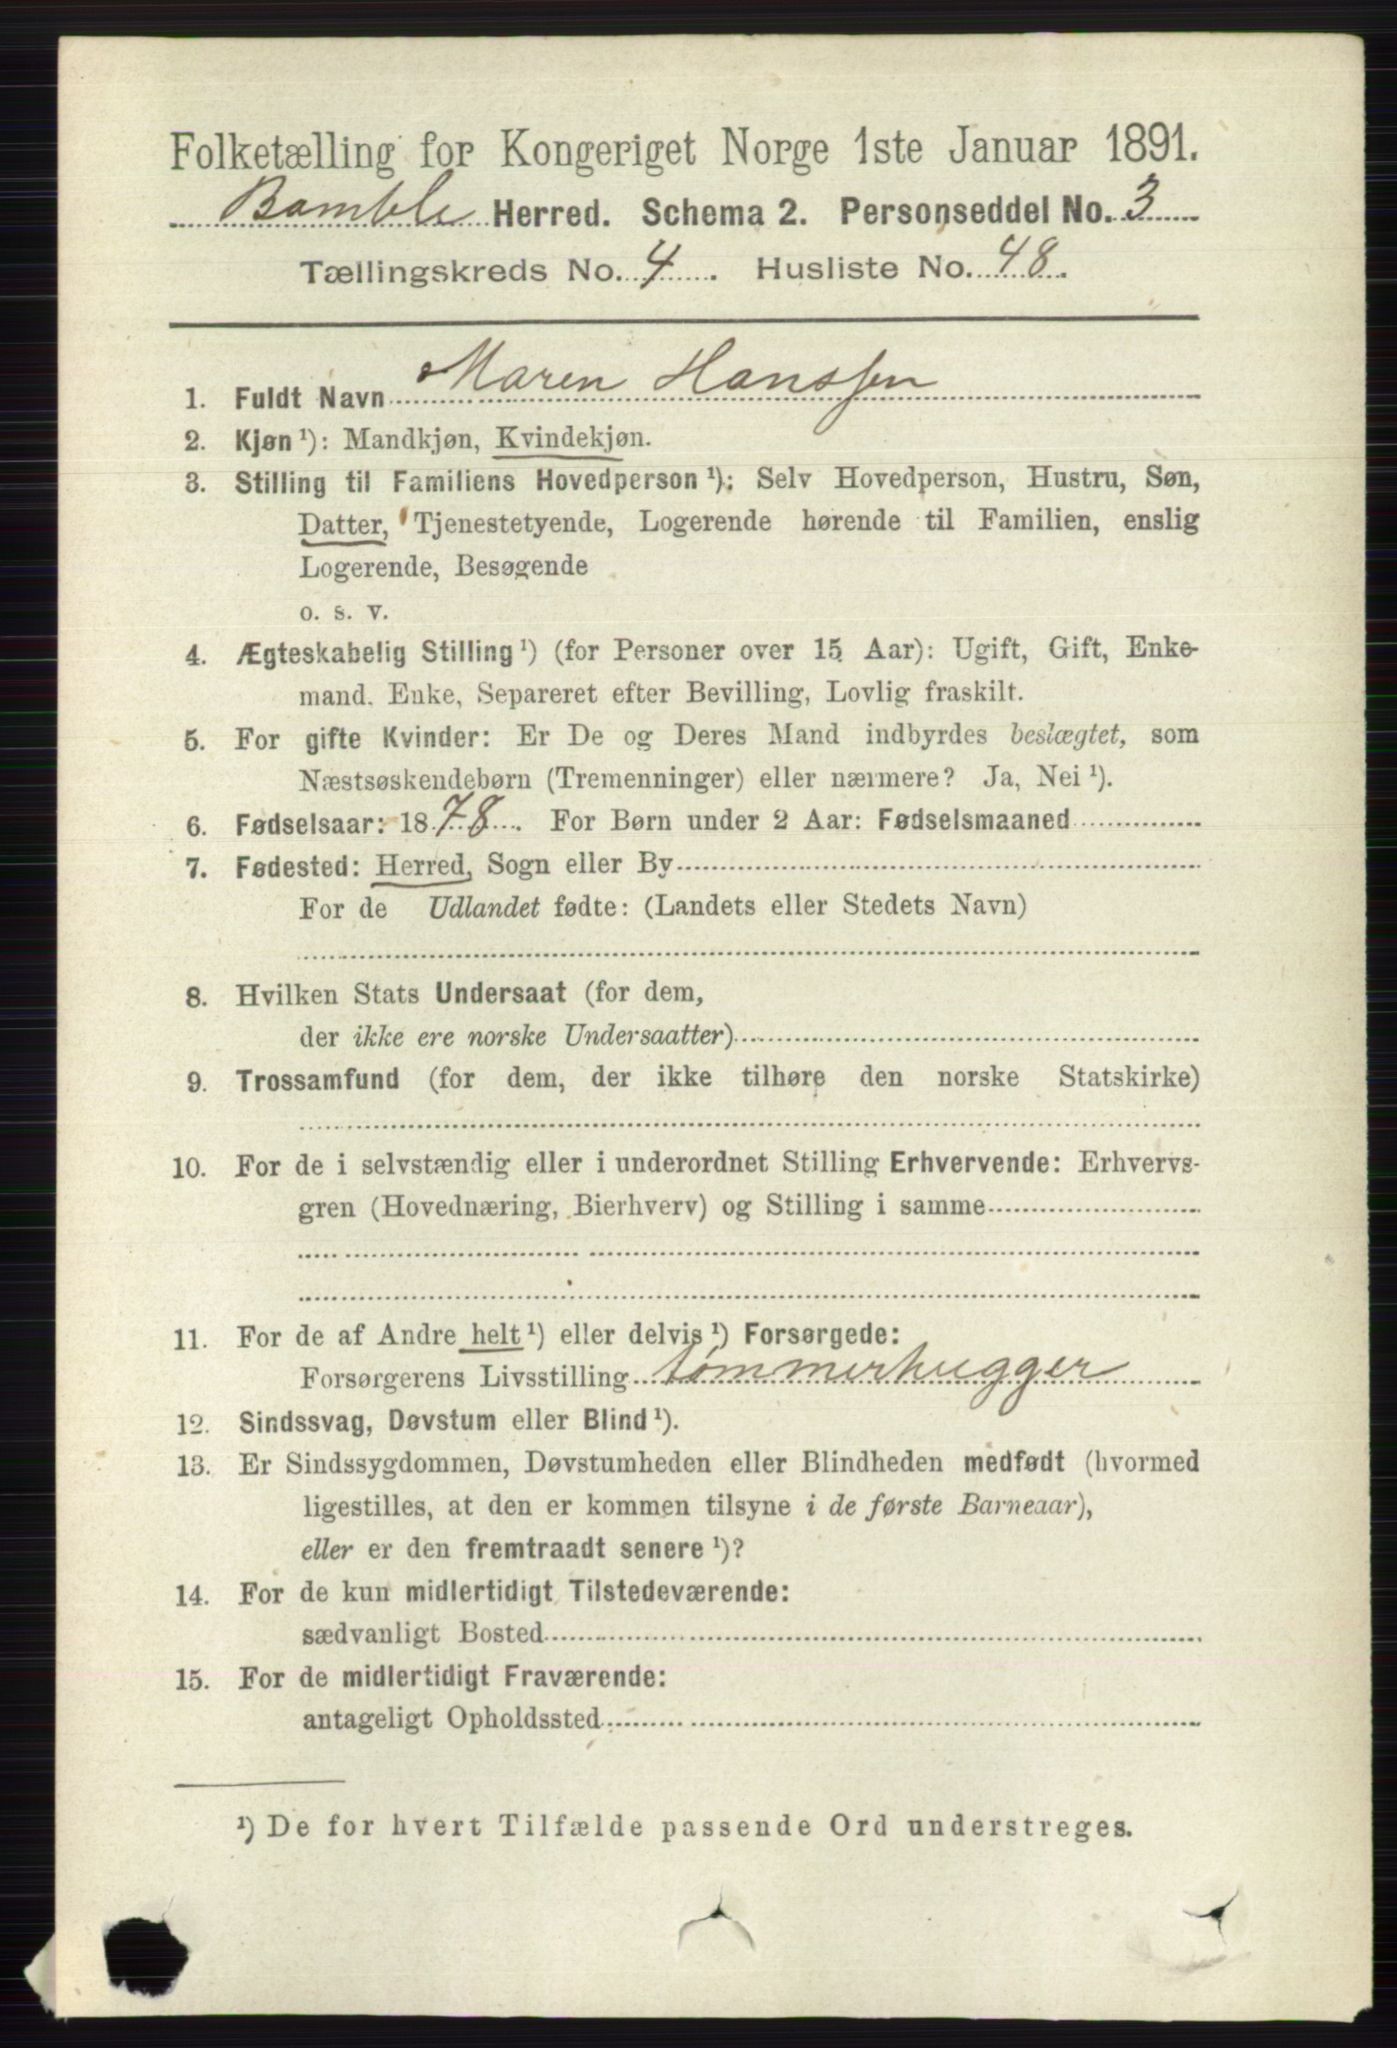 Folketælling for Kongeriget Norge 1ste Januar 1891.
Bamble Herred. Schema 2. Personseddel No. 3
Tællingskreds No. 4. Husliste No. 48.
1. Fuldt Navn Maren Hanssen
2. Kjøn ¹): Mandkjøn, Kvindekjøn.
3. Stilling til Familiens Hovedperson ¹): Selv Hovedperson, Hustru, Søn,
Datter, Tjenestetyende, Logerende hørende til Familien, enslig
Logerende, Besøgende
o. s. v.
4. Ægteskabelig Stilling ¹) (for Personer over 15 Aar): Ugift, Gift, Enke-
mand. Enke, Separeret efter Bevilling, Lovlig fraskilt.
5. For gifte Kvinder: Er De og Deres Mand indbyrdes beslægtet, som
Næstsøskendebørn (Tremenninger) eller nærmere? Ja, Nei ¹).
6. Fødselsaar: 1878. For Børn under 2 Aar: Fødselsmaaned
7. Fødested: Herred, Sogn eller By
For de Udlandet fødte: (Landets eller Stedets Navn)
8. Hvilken Stats Undersaat (for dem,
der ikke ere norske Undersaatter)
9. Trossamfund (for dem, der ikke tilhøre den norske Statskirke)
10. For de i selvstændig eller i underordnet Stilling Erhvervende: Erhvervs-
gren (Hovednæring, Bierhverv) og Stilling i samme
11. For de af Andre helt ¹) eller delvis ¹) Forsørgede:
Forsørgerens Livsstilling tømmerhugger
12. Sindssvag, Døvstum eller Blind ¹).
13. Er Sindssygdommen, Døvstumheden eller Blindheden medfødt (hvormed
ligestilles, at den er kommen tilsyne i de første Barneaar),
eller er den fremtraadt senere ¹)?
14. For de kun midlertidigt Tilstedeværende:
sædvanligt Bosted
15. For de midlertidigt Fraværende:
antageligt Opholdssted
¹) De for hvert Tilfælde passende Ord understreges.